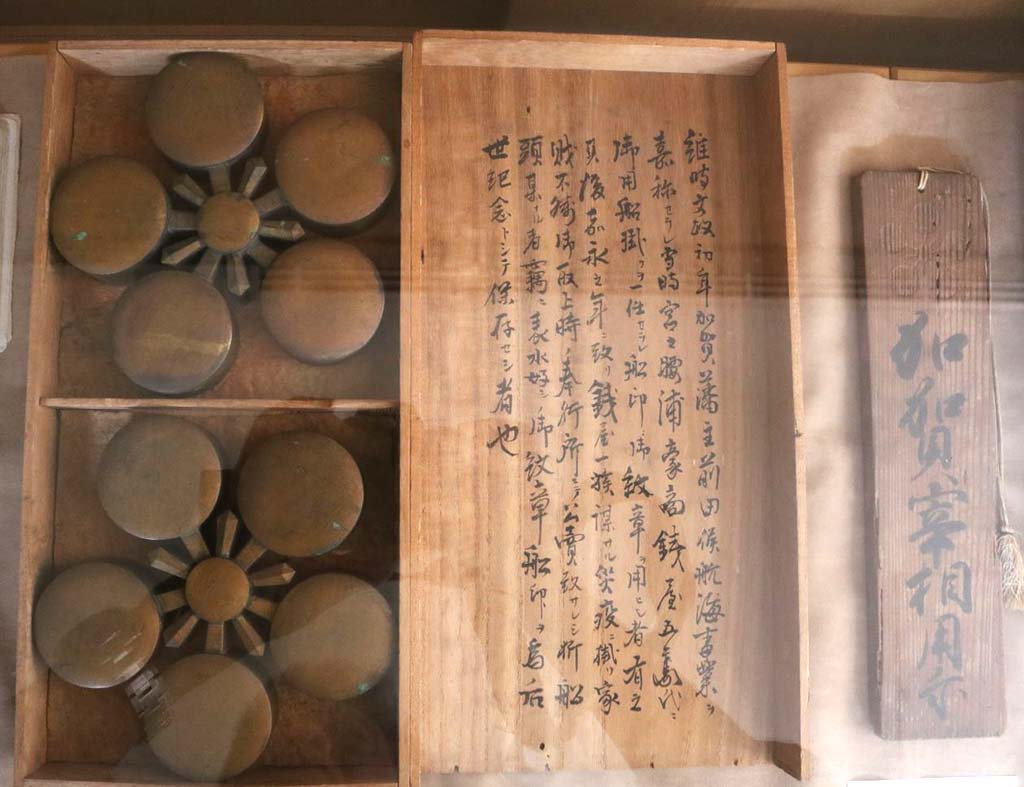 維時文政初年加賀藩主前田侯航海書業ヲ
嘉称セラレ當時宮之腰浦豪商銭屋五兵衛代ニ
御用船掛ヲ一任セラレ船印御紋章ヲ用ヒシ者有之
其後嘉永之年ニ致リ銭屋一族謀サル災疫ニ掛リ家
財不残御取上時ノ奉行所ニテ公賣致サレシ折船
頭某ナル者竊ニ表水好シ御紋章船印ヲ為后
世紀念トシテ保存セシ者也
加賀宰相用